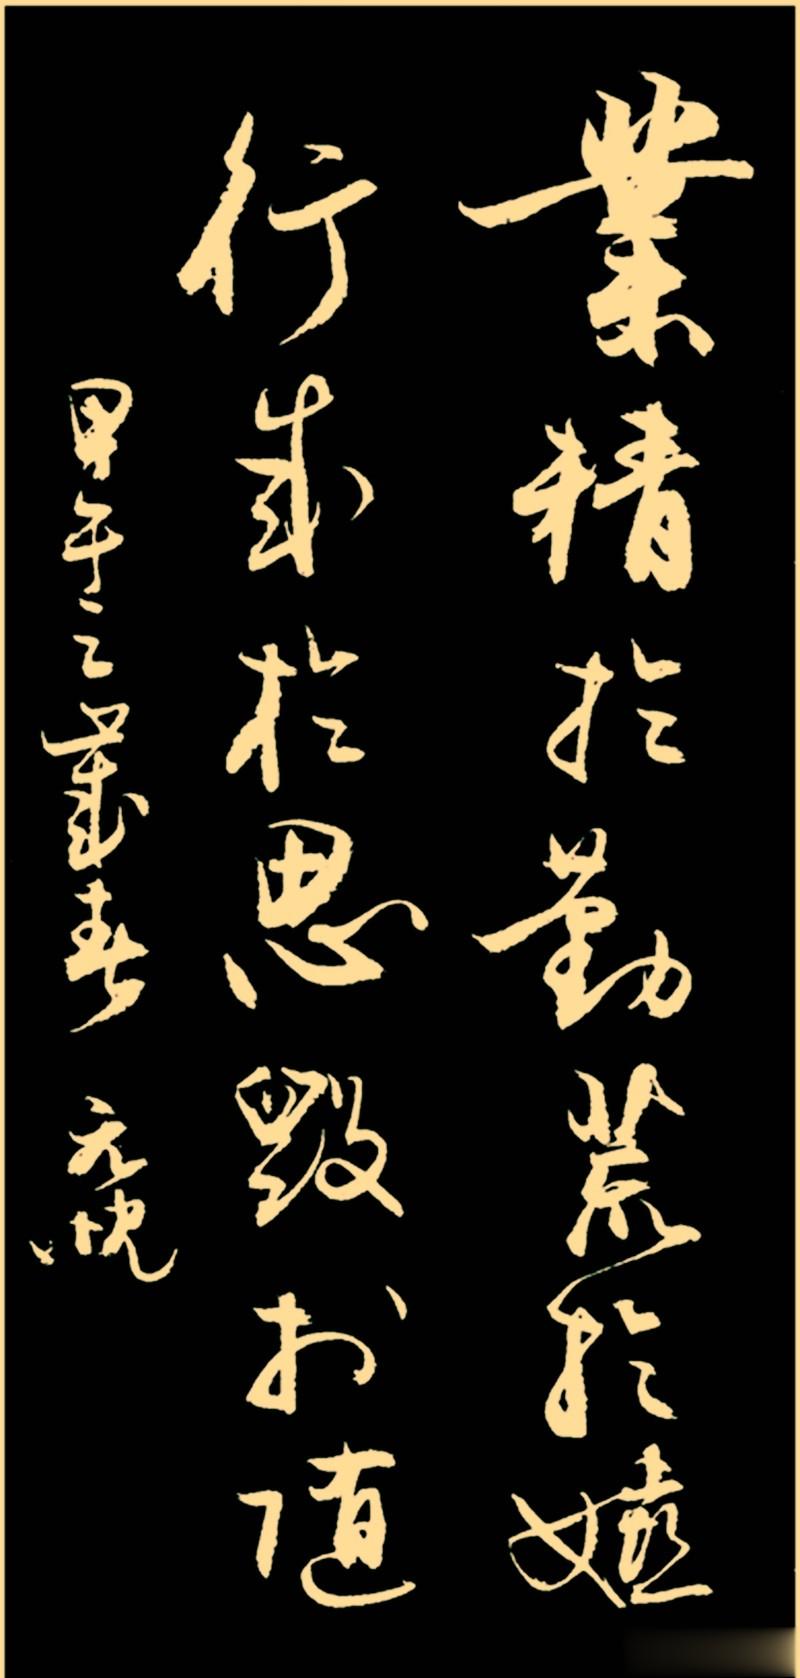 業精於勤荒於嬉
行成於思毀於随
甲午之歲春